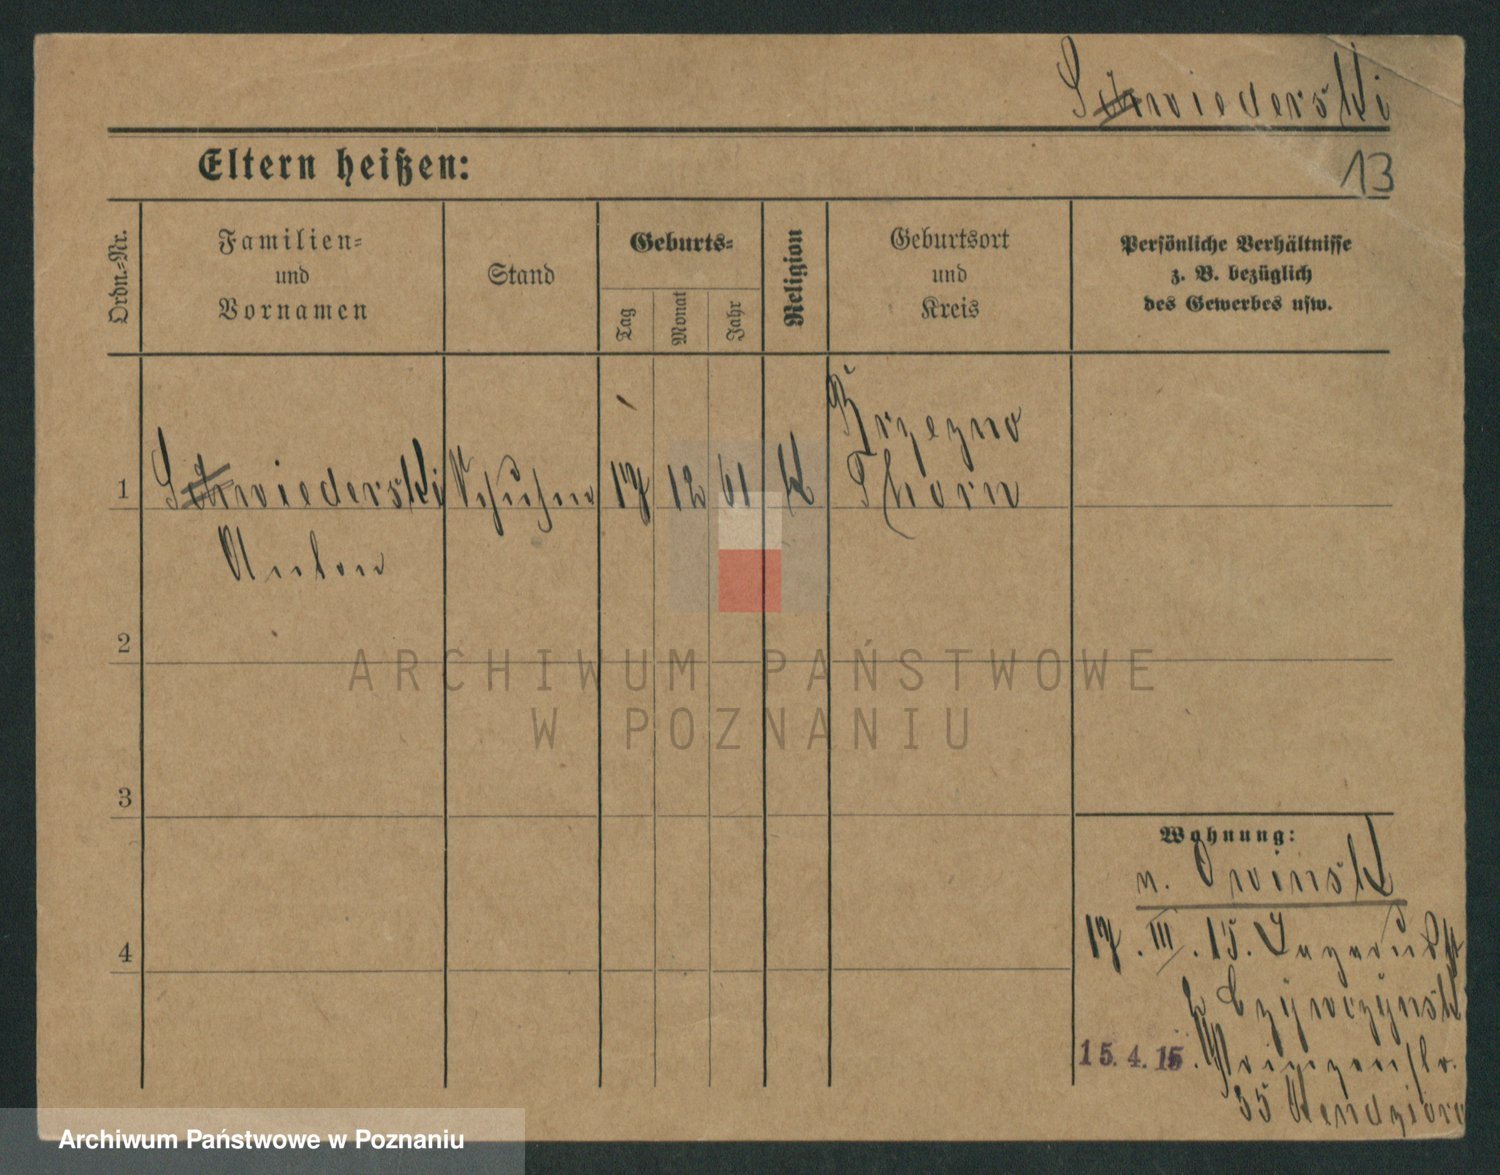 Schwiederski
Eltern heißen:
13
Ordn.=Nr.
Familien=
und
Vornamen
Stand
Geburts=
Tag
Monat
Jahr
Religion
Geburtsort
und
Kreis
Persönliche Verhältnisse
z. B. bezüglich
des Gewerbes usw.
1
Schwiederski
Anton
17 12 61 k
Brzezno
Thorn
2
3
4
Wohnung:
n. Owinsk
17. III. 15.
15.4.15. Prinzenstr.
35
ARCHIWUM PAŃSTWOWE
W POZNANIU
Archiwum Państwowe w Poznaniu